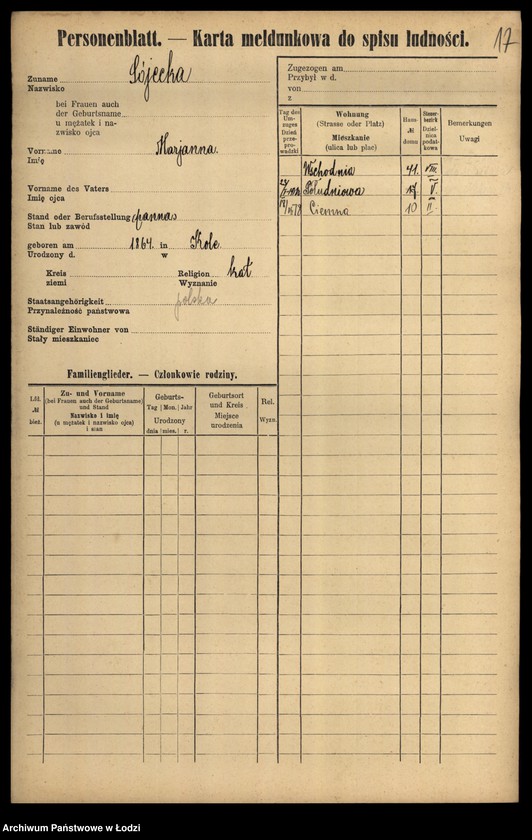 Personenblatt. — Karta meldunkowa do spisu ludności.
17
Zuname Sójecka
Nazwisko
bei Frauen auch
der Geburtsname
u mężatek i na-
zwisko ojca
Vorname Marjanna.
Imię
Vorname des Vaters
Imię ojca
Stand oder Berufsstellung panna
Stan lub zawód
geboren am 1864. in Kole
Urodzony d. w
Kreis Religion kat
ziemi Wyznanie
Staatsangehörigkeit polska
Przynależność państwowa
Ständiger Einwohner von
Stały mieszkaniec
Familienglieder. — Członkowie rodziny.
Lfd. № bież.
Zu- und Vorname
(bei Frauen auch der Geburtsname)
und Stand
Nazwisko i imię
(u mężatek i nazwisko ojca)
i stan
Geburts-
Tag Mon. Jahr
Urodzony
dnia mies. r.
Geburtsort
und Kreis
Miejsce
urodzenia
Rel.
Wyzn.
Zugezogen am
Przybył w d.
von
z
Tag des
Um-
zuges
Dzień
prze-
pro-
wadzki
Wohnung
(Strasse oder Platz)
Mieszkanie
(ulica lub plac)
Haus-
№
domu
Steuer-
bezirk
Dziel-
nica
podat-
kowa
Bemerkungen
Uwagi
Wschodnia 41. VIII.
Południowa 17 V.
Ciemna 10 II.
Archiwum Państwowe w Łodzi